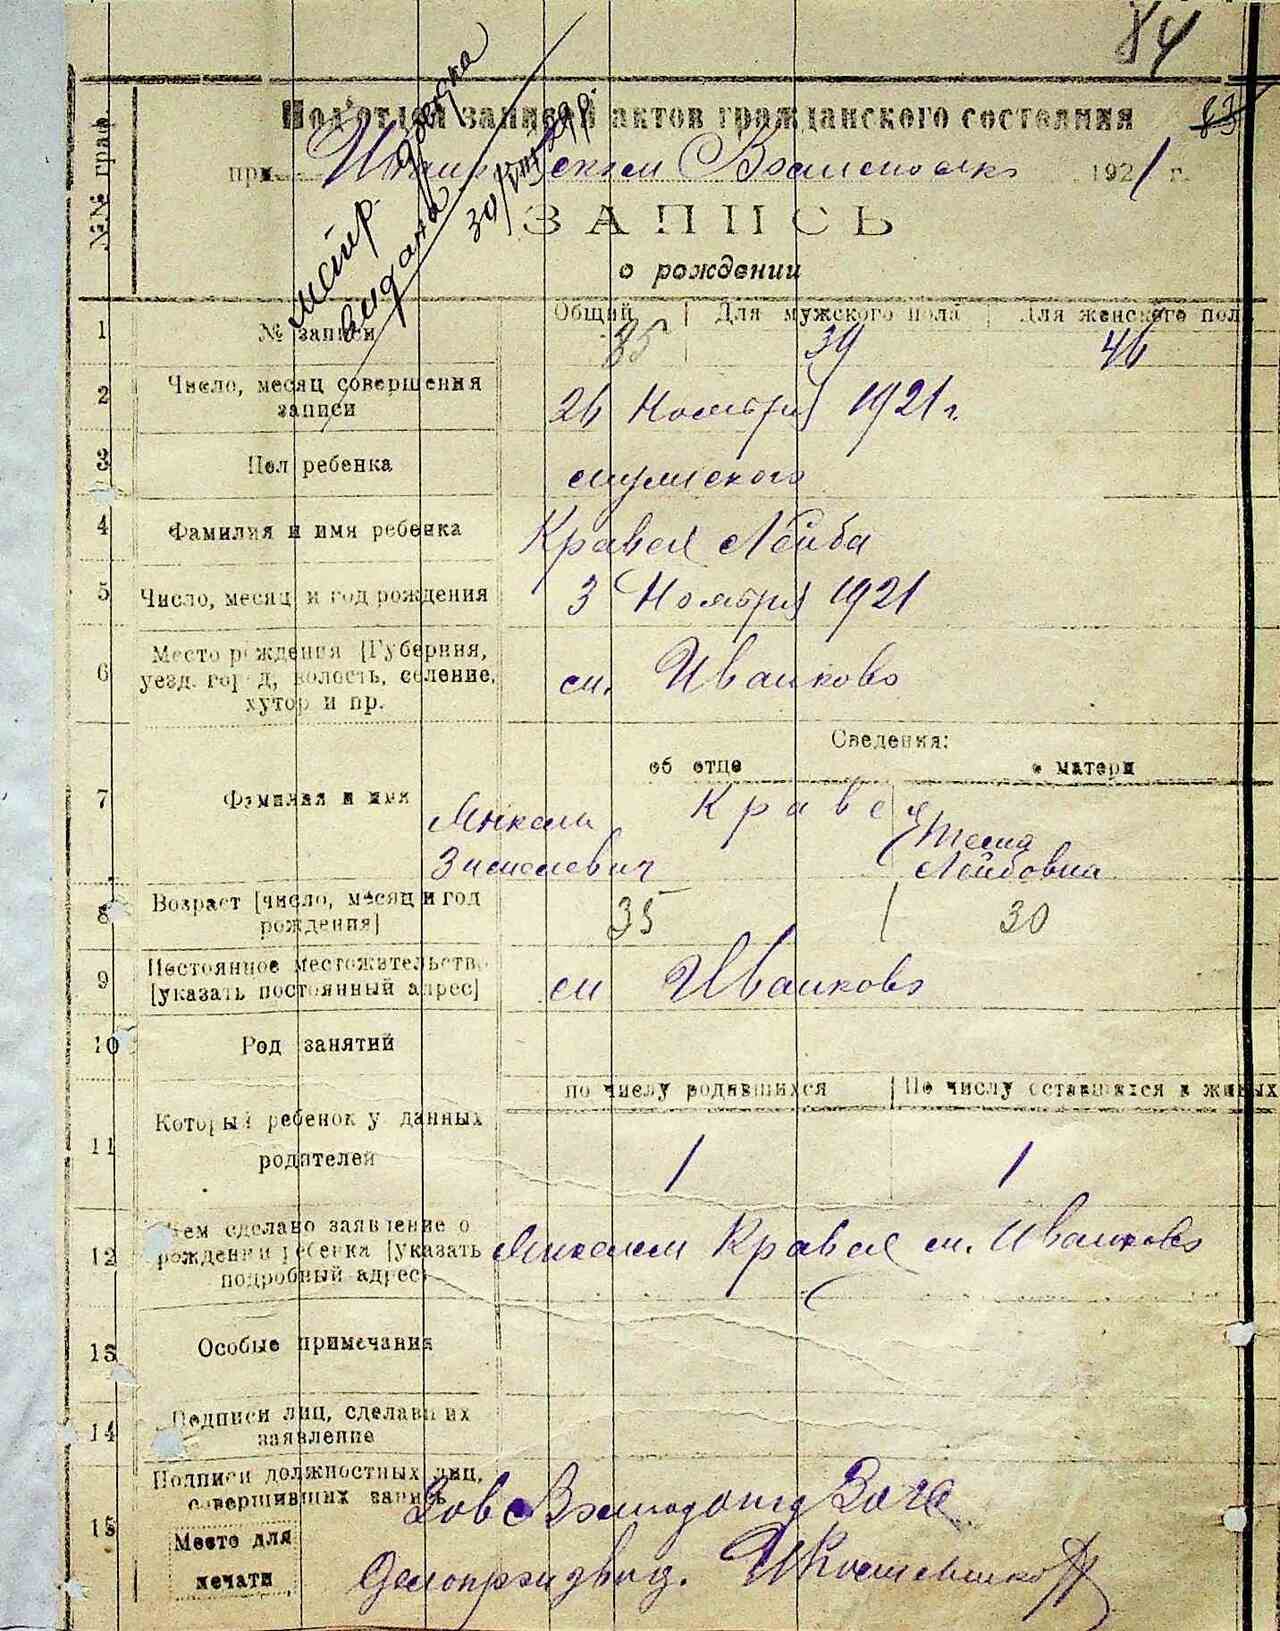 84
83
Подотдел записей актов гражданского состояния
при Иванковском 1921 г.
ЗАПИСЬ
о рождении
метр.
выдана
30/VIII 29 р.
№№ граф
Общий Для мужского пола Для женского пола
1 № записи 85 39 46
2 Число, месяц совершения
записи
26 Ноября 1921 г.
3 Пол ребенка мужского
4 Фамилия и имя ребенка Кравец Лейба
5 Число, месяц и год рождения 3 Ноября 1921
6 Место рождения [Губерния,
уезд, город, волость, селение,
хутор и пр.
м. Иванково
Сведения:
об отце о матери
7 Фамилия и имя Кравец
Янкель
Зиселевич
Лейбовна
8 Возраст [число, месяц и год
рождения]
35 30
9 Постоянное местожательство
[указать постоянный адрес]
м Иванково
10 Род занятий
по числу родившихся По числу оставшихся в живых
11 Который ребенок у данных
родителей
1 1
12 Кем сделано заявление о
рождении ребенка [указать
подробный адрес]
Янкелем Кравец м. Иванково
13 Особые примечания
14 Подписи лиц, сделавших
заявление
15 Подписи должностных лиц,
совершивших запись
Место для
печати
Зав
Делопроизвод.